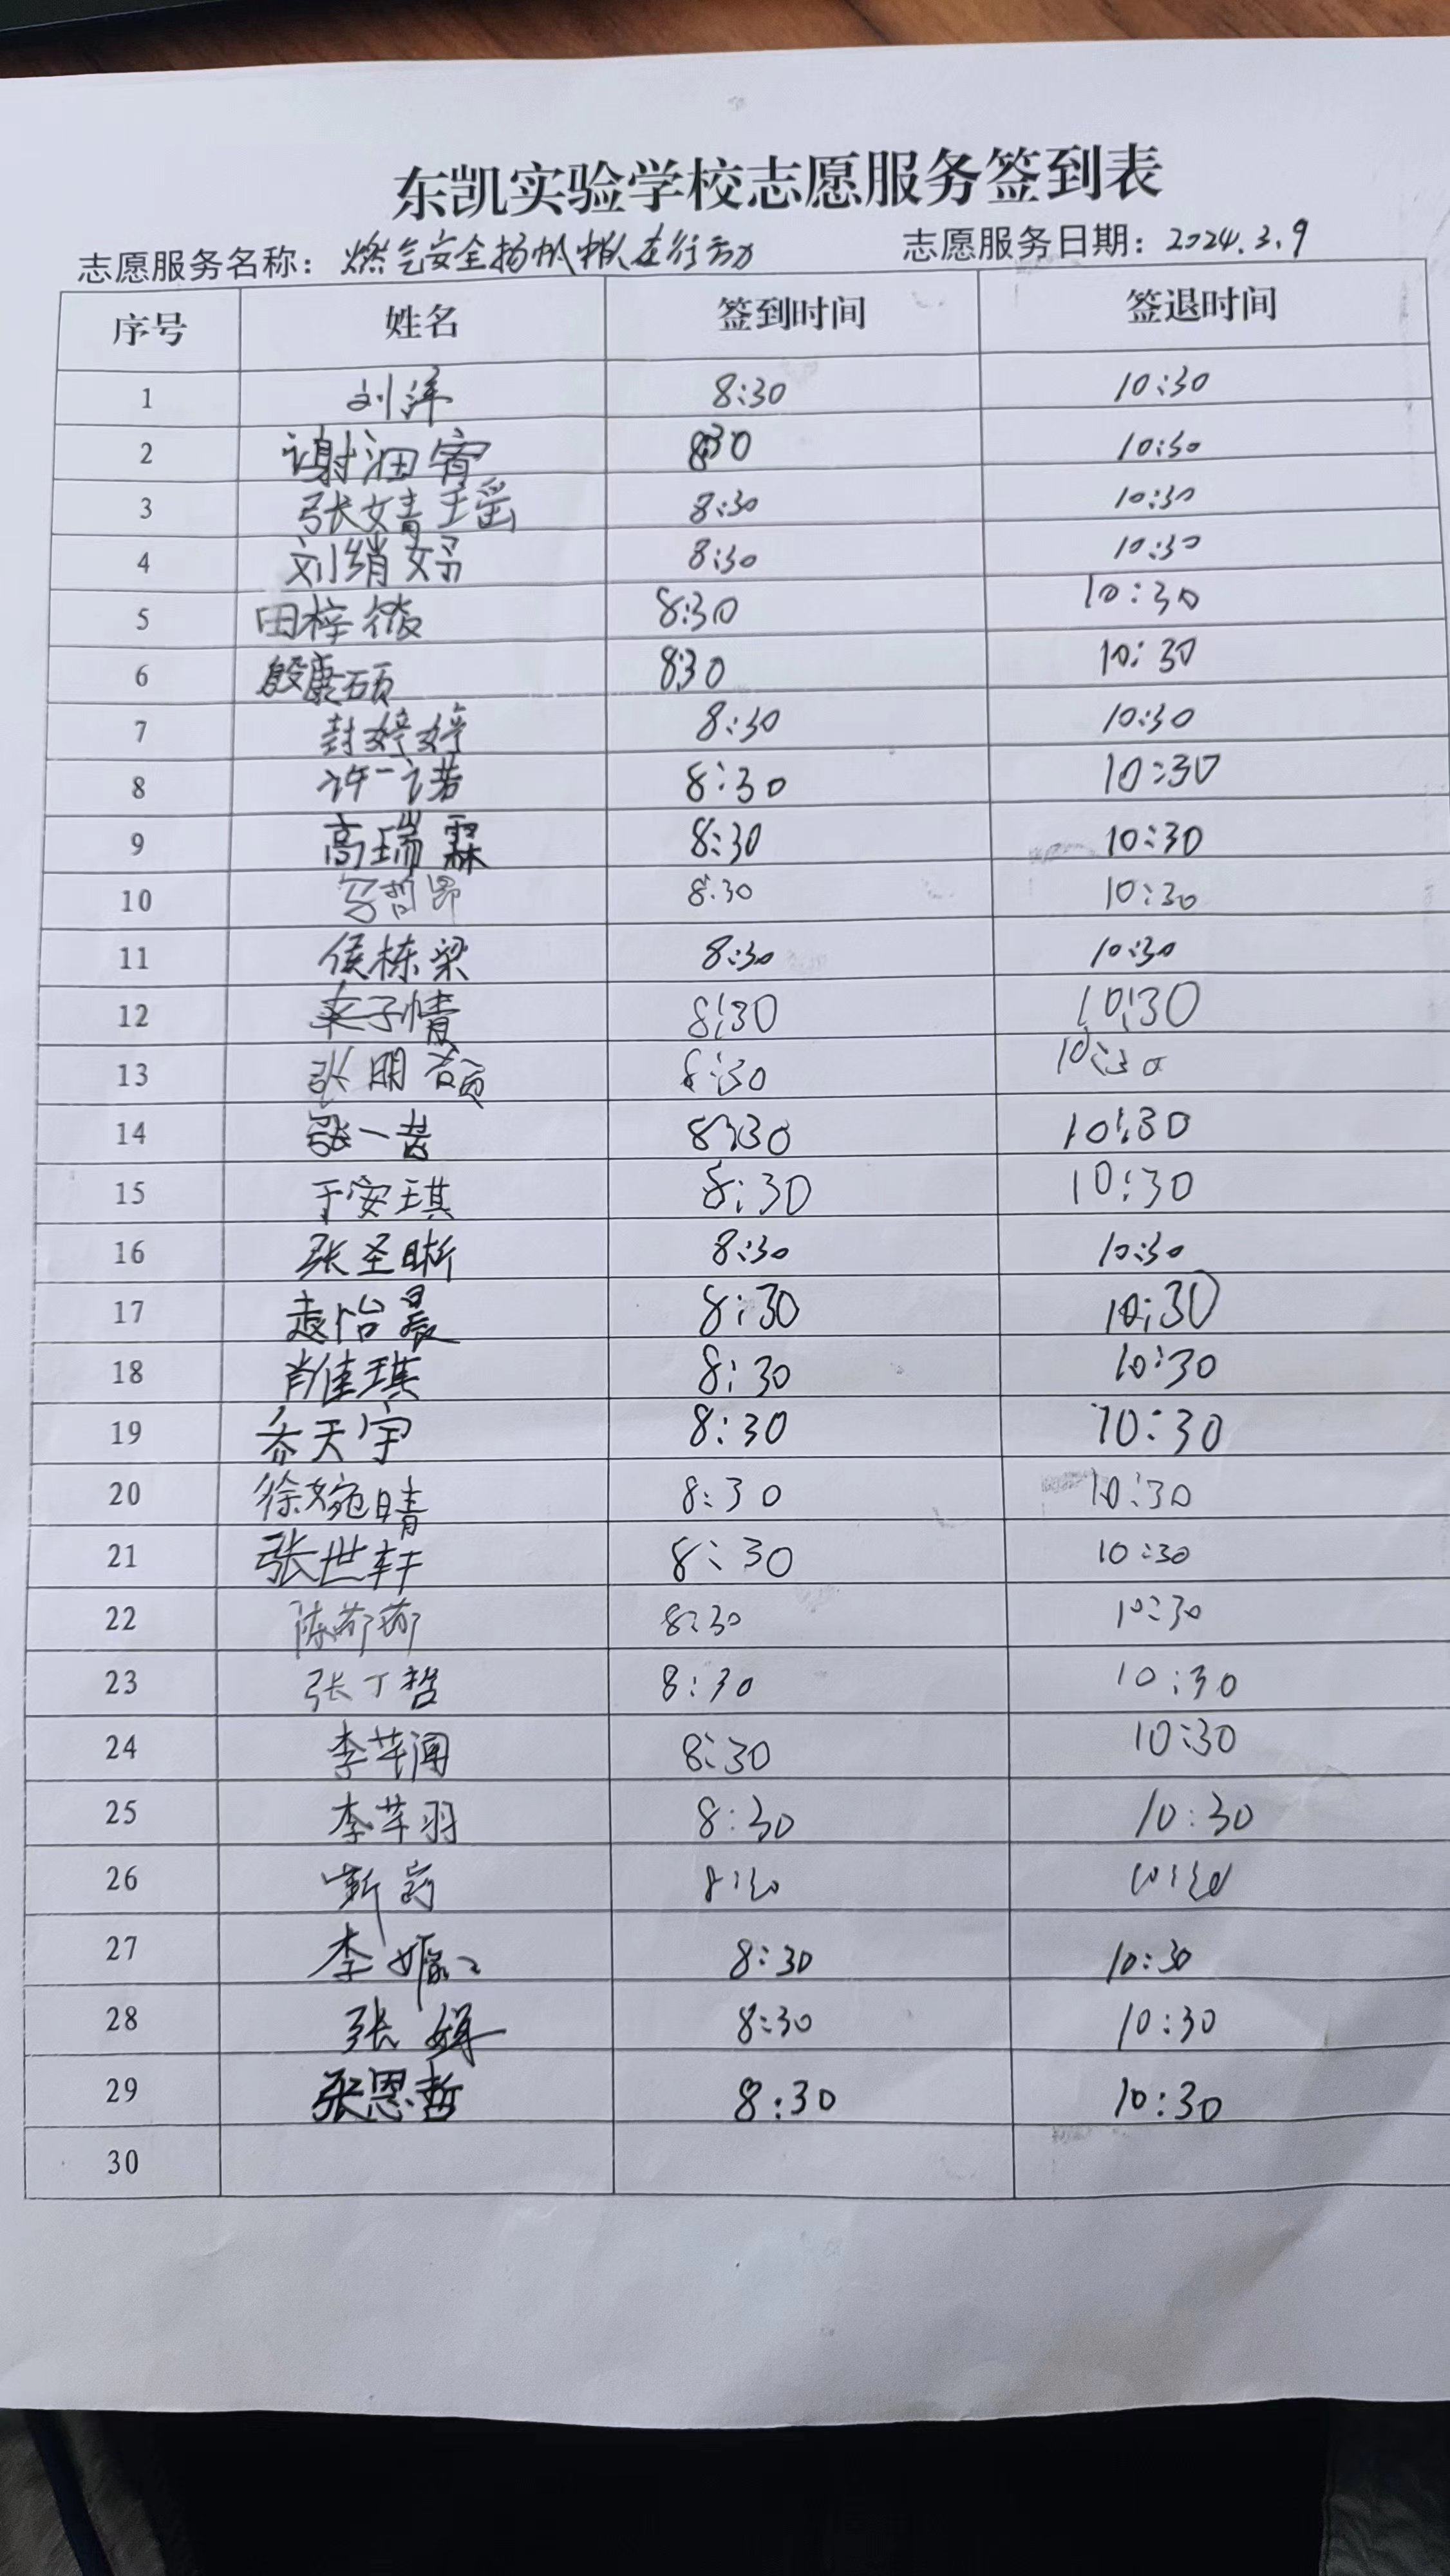 东凯实验学校志愿服务签到表
志愿服务名称：燃气安全扬帆梯队在行动 志愿服务日期：2024.3.9
序号 姓名 签到时间 签退时间
1 刘洋 8:30 10:30
2 谢润宵 8:30 10:30
3 张婧瑶 8:30 10:30
4 刘绡妤 8:30 10:30
5 田梓筱 8:30 10:30
6 殷康硕 8:30 10:30
7 封婷婷 8:30 10:30
8 许一诺 8:30 10:30
9 高瑞霖 8:30 10:30
10 哲昂 8:30 10:30
11 侯栋梁 8:30 10:30
12 子情 8:30 10:30
13 张明 8:30 10:30
14 张一 8:30 10:30
15 于安琪 8:30 10:30
16 张圣晰 8:30 10:30
17 怡晨 8:30 10:30
18 肖佳琪 8:30 10:30
19 乔天宇 8:30 10:30
20 徐婉晴 8:30 10:30
21 张世轩 8:30 10:30
22 陈 8:30 10:30
23 张丁哲 8:30 10:30
24 李芊闻 8:30 10:30
25 李芊羽 8:30 10:30
26 8:30 10:30
27 李 8:30 10:30
28 张 8:30 10:30
29 张恩哲 8:30 10:30
30